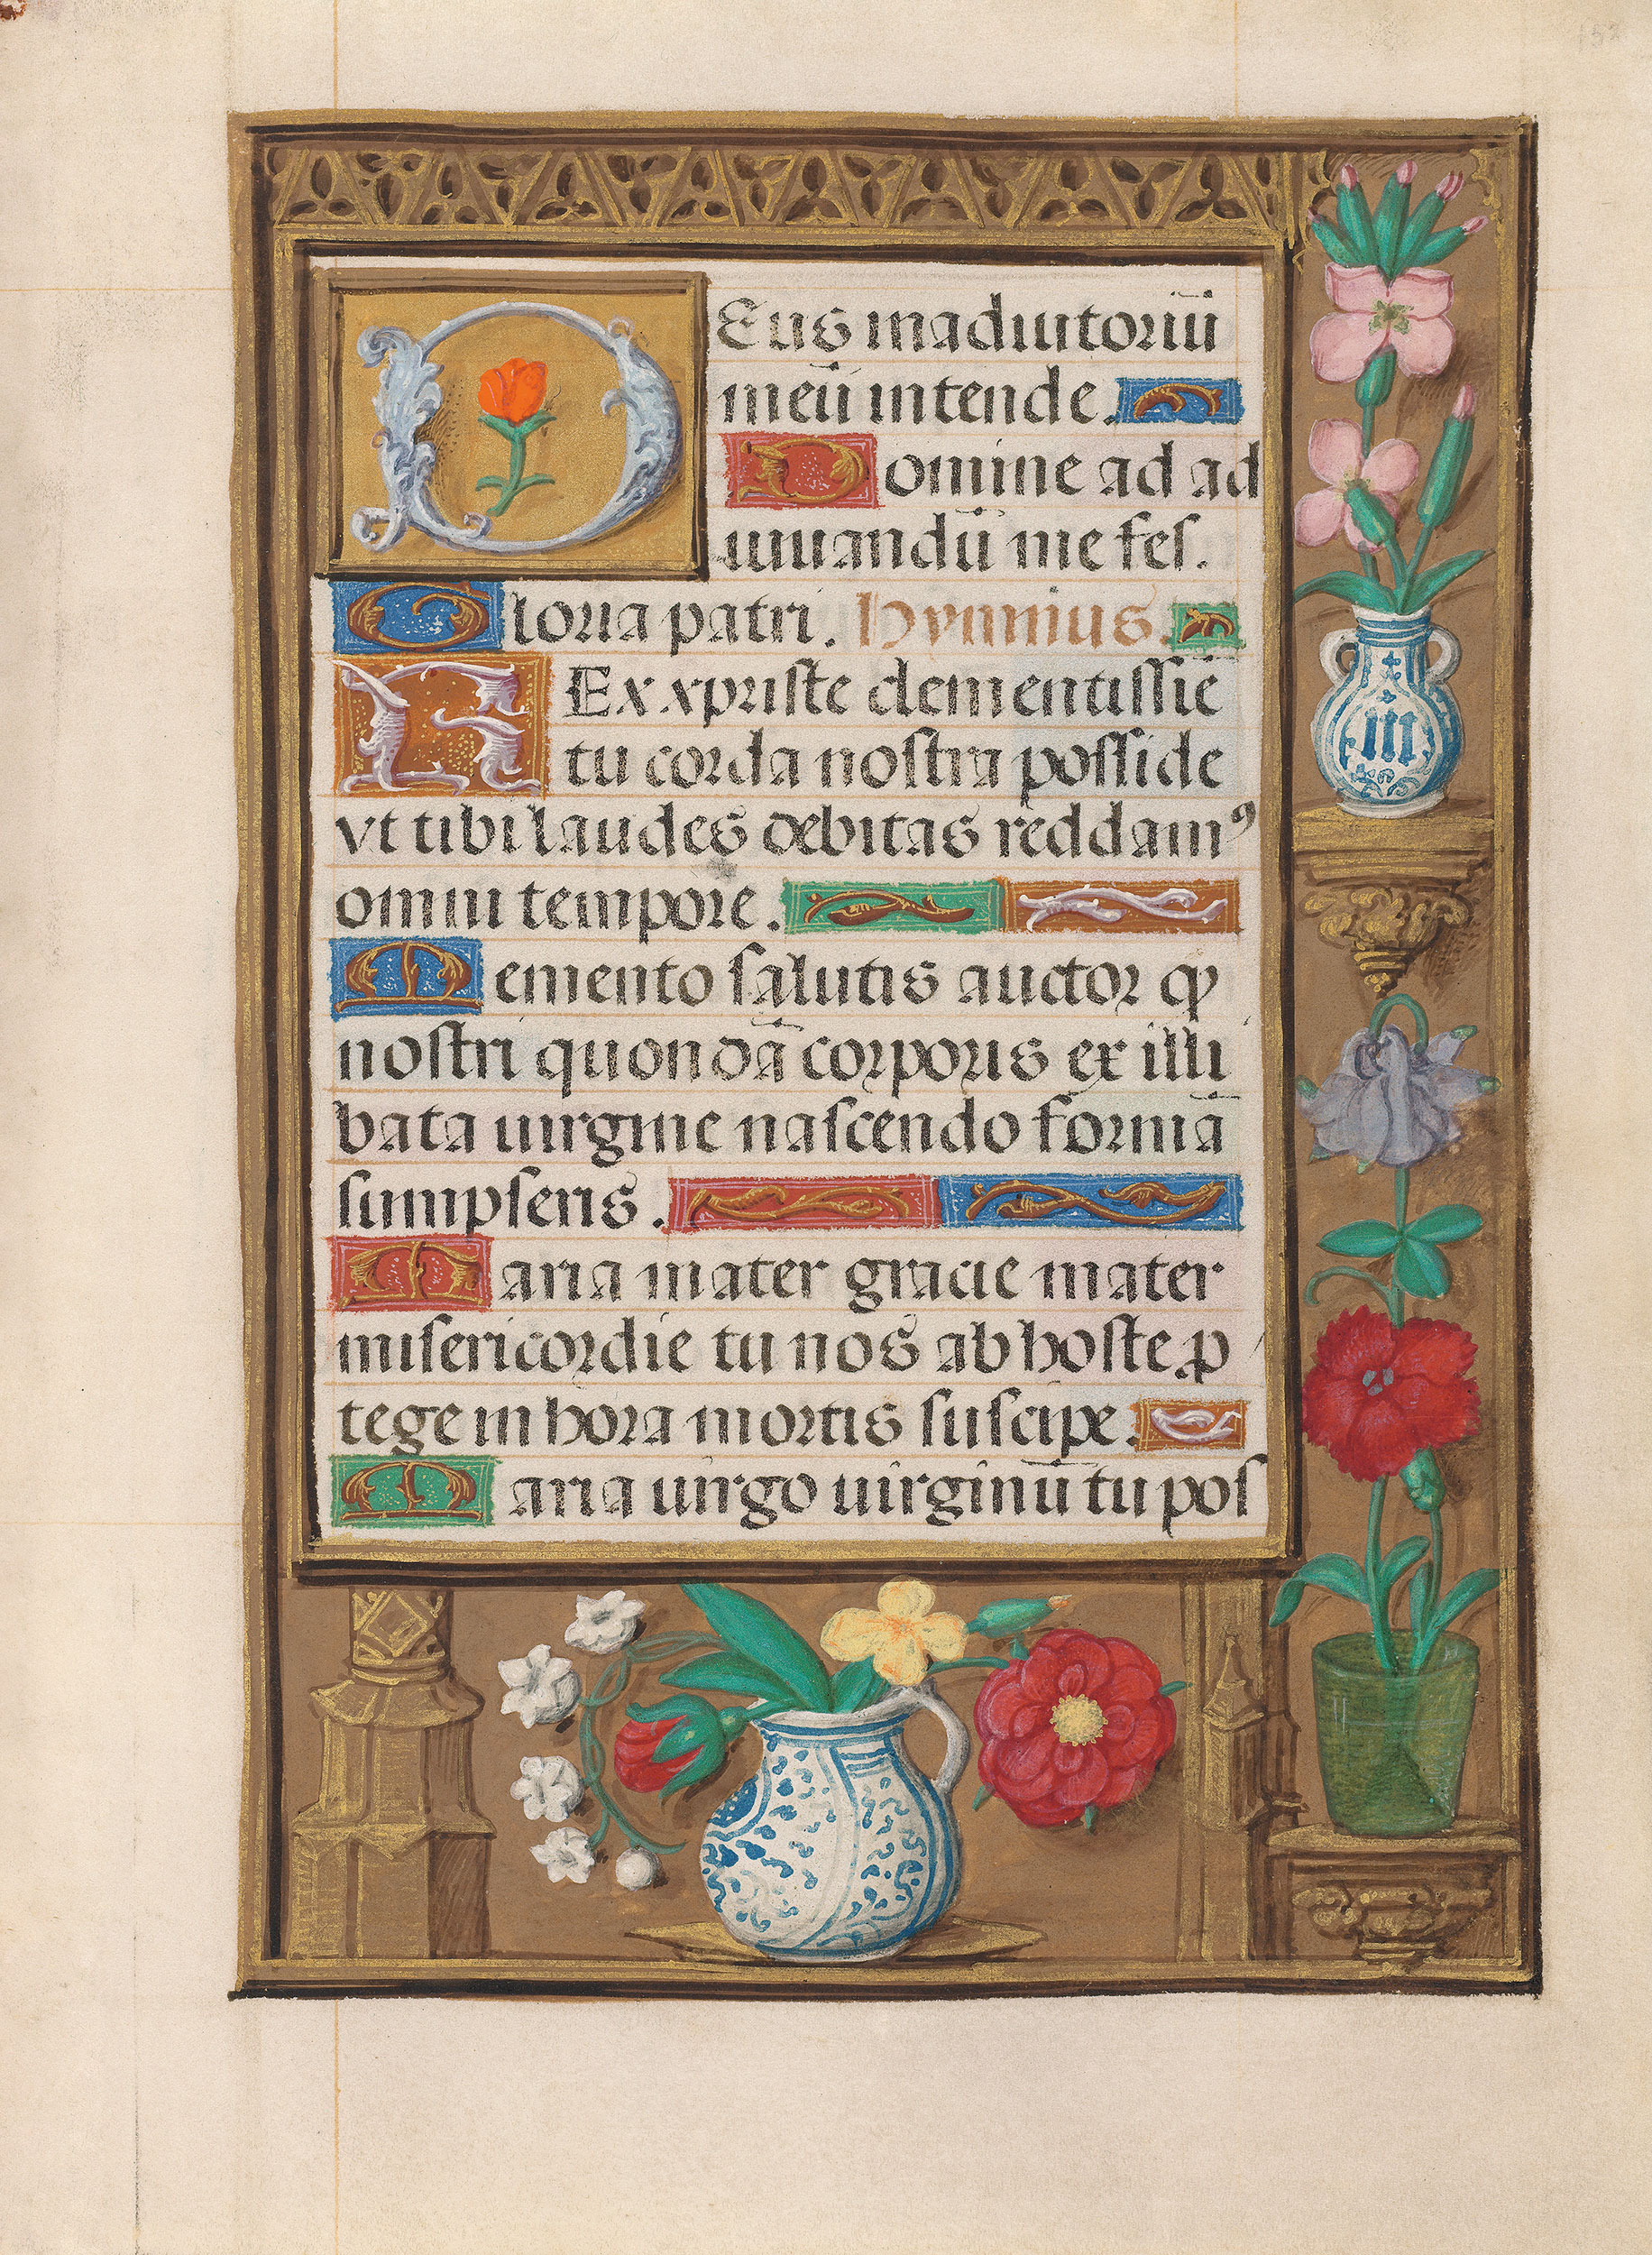 Deus in adiutoriū
meū intende.
Domine ad ad
iuuandū me fes.
Gloria patri. Hymnus.
REx xpriste clementissīe
tu corda nostra posside
vt tibi laudes debitas reddamꝰ
omni tempore.
Memento salutis auctor ꝙ
nostri quondā corporis ex illi
bata uirgine nascendo formā
sumpseris.
Maria mater gracie mater
misericordie tu nos ab hoste ꝓ
tege in hora mortis suscipe.
Maria uirgo uirginū tu pos
III